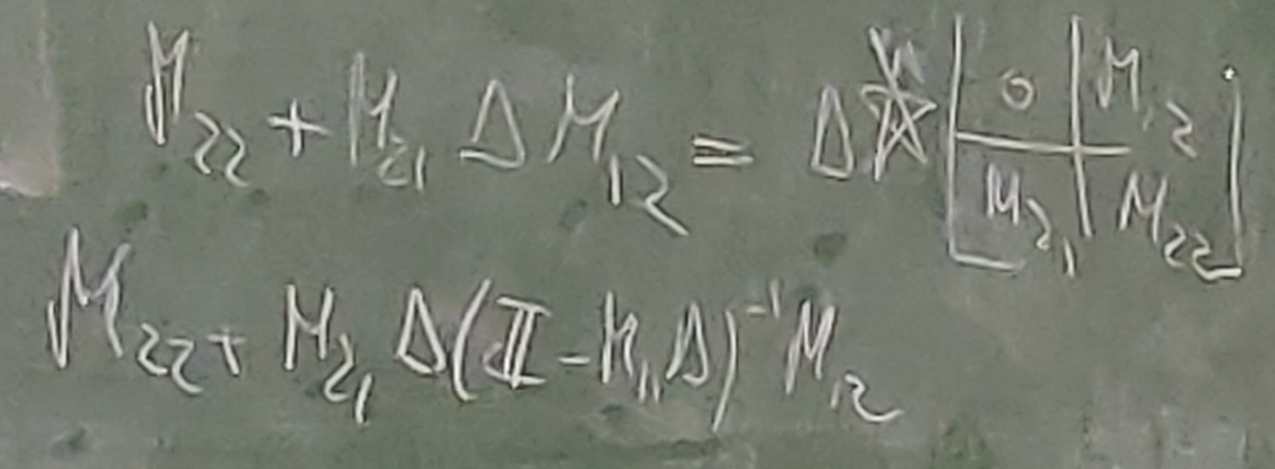 M₂₂ + M₂₁ Δ M₁₂ = Δ ☆ [ 0 | M₁₂ ; M₂₁ | M₂₂ ]
M₂₂ + M₂₁ Δ (𝕀 − M₁₁ Δ)⁻¹ M₁₂